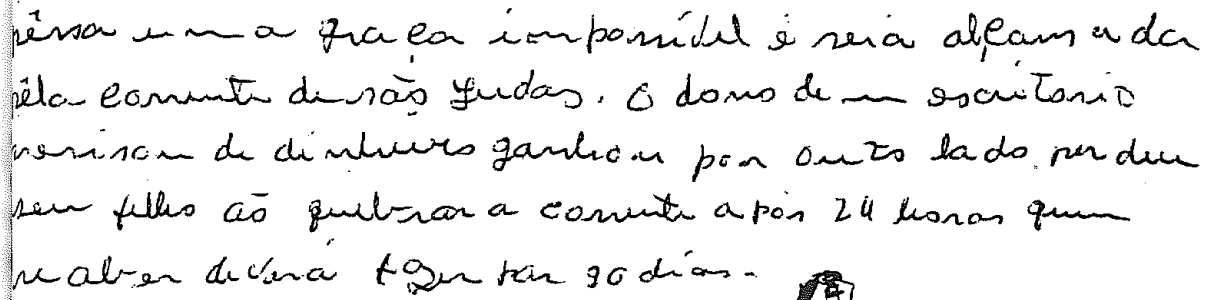 pêssa uma graça impossível e seia alçamsada
pêla corrente de são Judas. O dono de um escritorio
de dinheiro ganhou por outro lado perdeu
seu filho ao quebrar a corrente apos 24 horas quem
receber devera fazer por 90 dias.